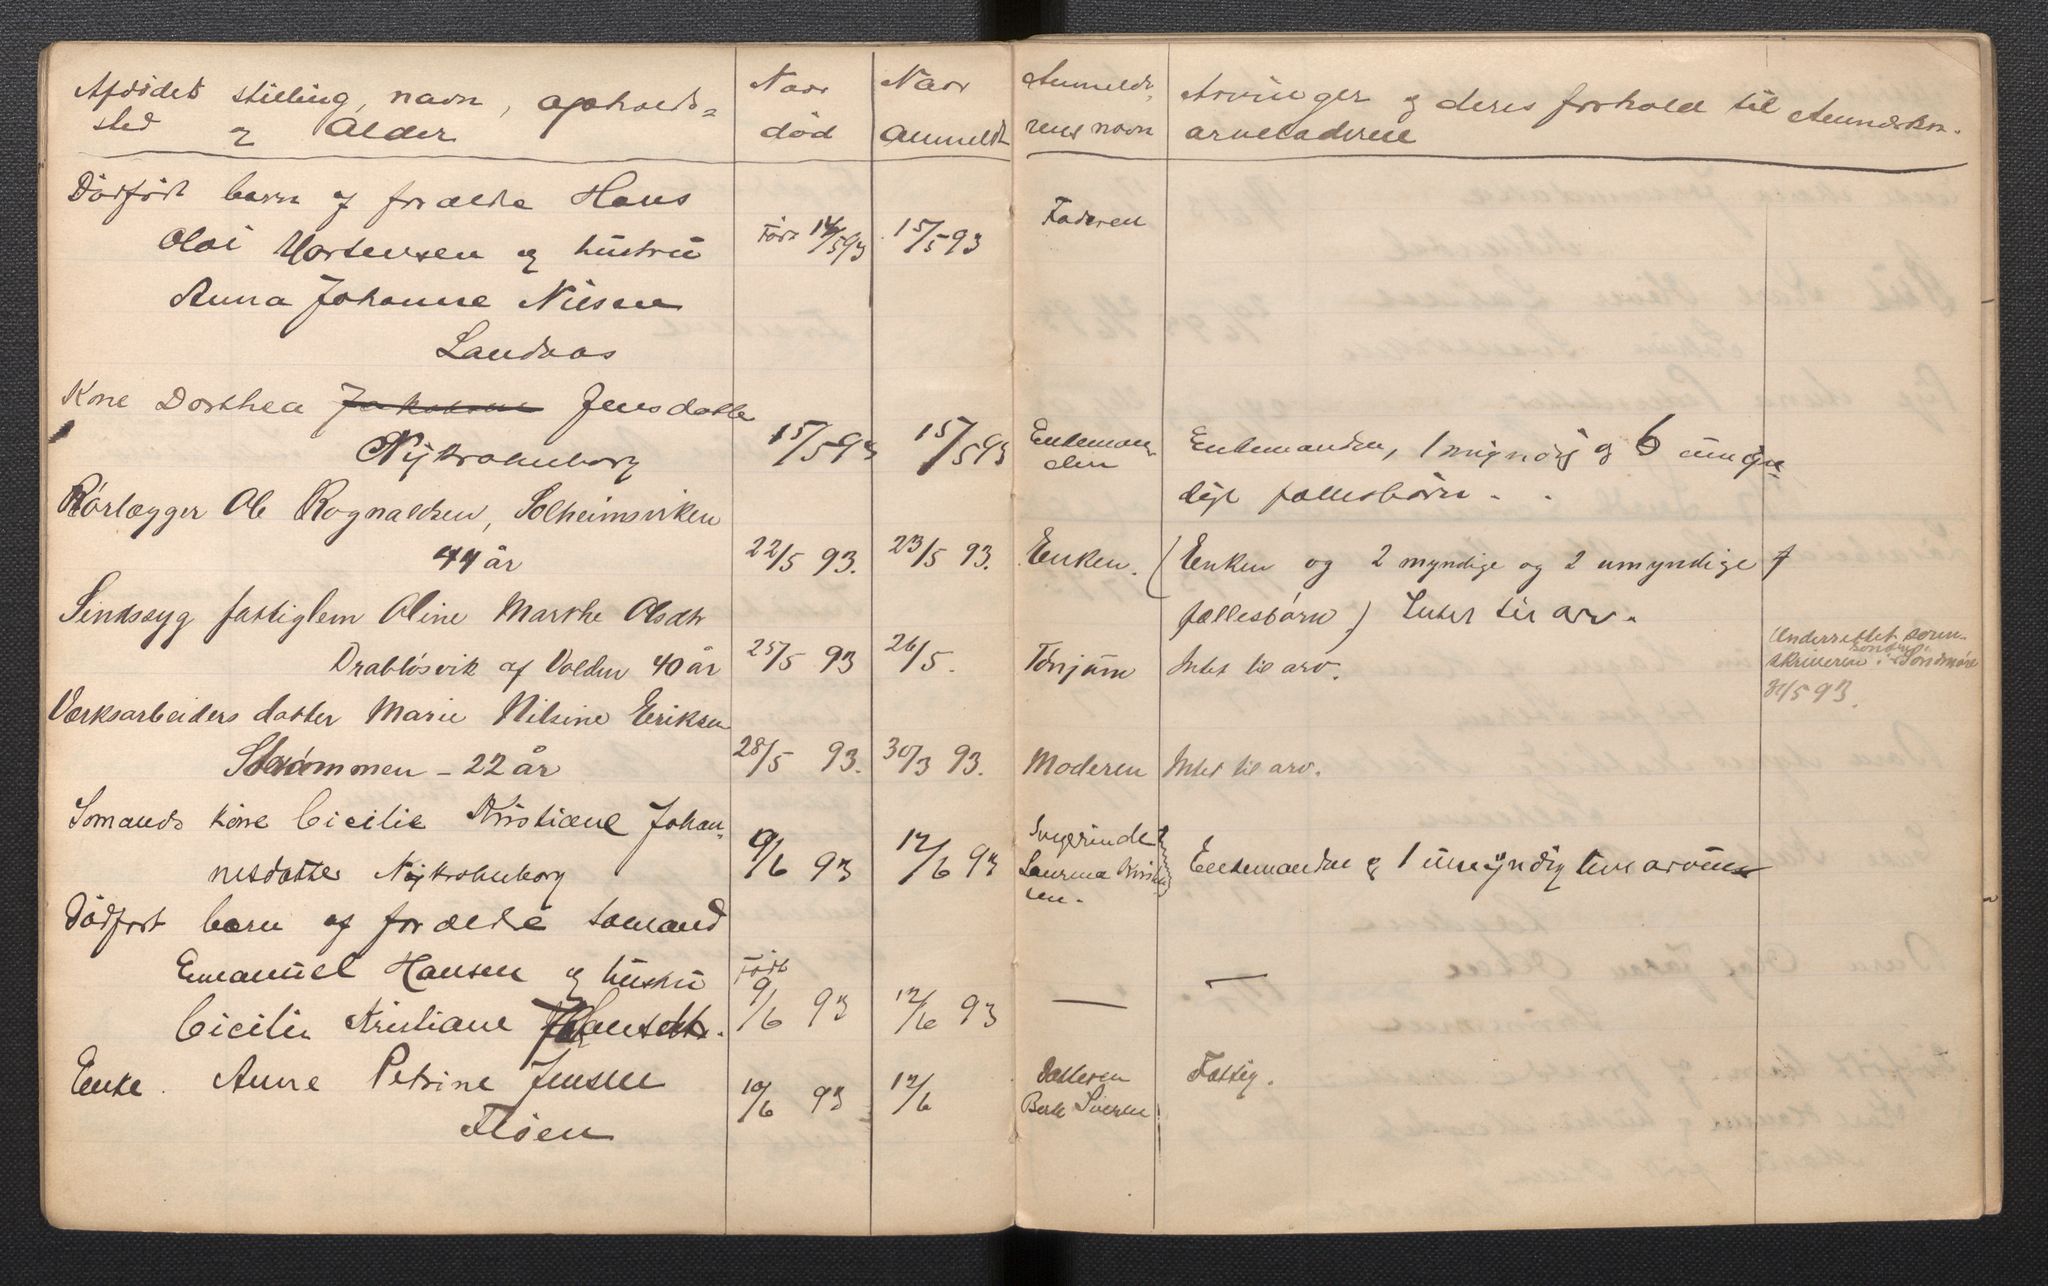 Afdødets stilling, navn, opholds= Naar Naar Anmelde- Arvinger og deres forhold til Anmærkn.
sted og Alder død anmeldt rens navn arveladeren
Dødfødt barn af forældre Hans
Olai Mortensen og hustru Født 14/5 93 15/5 93 Faderen
Anna Johanne Nilsen
Landaas
Kone Dorthea Jensdatter
Nykrohnborg 15/5 93 15/5 93 Enkeman- Enkemanden, 1 myndig og 6 umyn-
den dige fællesbørn.
Rørlægger Ole Rognaldsen, Solheimsviken
44 år 22/5 93. 23/5 93. Enken. (Enken og 2 myndige og 2 umyndige
fællesbørn) Intet til arv.
Sindssyg fattiglem Oline Marthe Olsdtr
Drabløsvik af Volden 40 år 25/5 93 26/5. Tønjum Intet til arv. Underrettet soren-
skriveren i Søndmøre
31/5 93.
Værksarbeiders datter Marie Nilsine Eriksen
Strømmen - 22 år 28/5 93. 30/3 93. Moderen Intet til arv.
Sømands kone Cicilie Kristiane Johan-
nesdatter Nykrohnborg 9/6 93 12/6 93 Svigerinde Enkemanden & 1 umyndig livsarving
Laurina
Dødfødt barn af forældre sømand
Emanuel Hansen og hustru Født —
Cicilie Kristiane 9/6 93 12/6 93 —
Enke Anne Petrine Jensen 10/6 93 12/6 Datteren Fattig.
Fløen Berte Siversen